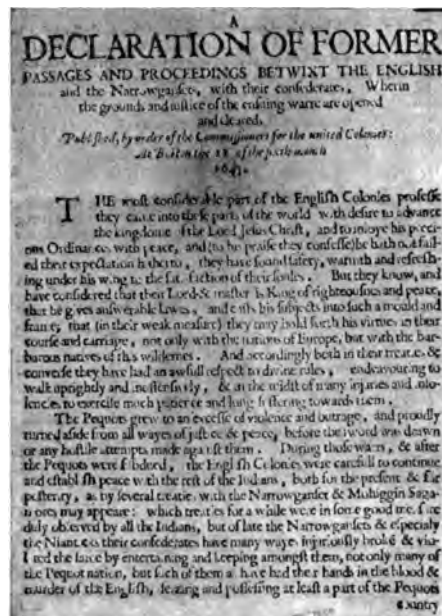 A
DECLARATION OF FORMER
PASSAGES AND PROCEEDINGS BETWIXT THE ENGLISH
and the Narrowgansets, with their confederates, Wherein
the grounds and justice of the ensuing warre are opened
and cleared.
Published, by order of the Commissioners for the united Colonies:
At Boston the 11 of the sixth month
1645.
THE most considerable part of the English Colonies professe
they came into these parts of the world with desire to advance
the kingdome of the Lord Jesus Christ, and to injoye his preci-
ous Ordinances with peace, and (to his praise they confesse) he hath not fail-
ed their expectation hitherto, they have found safety, warmth and refresh-
ing under his wing to the satisfaction of their soules. But they know, and
have considered that their Lord & master is King of righteousnes and peace,
that he gives answerable lawes, and casts his subjects into such a mould and
frame; that (in their weak measure) they may hold forth his virtues in their
course and carriage, not only with the nations of Europe, but with the bar-
barous natives of this wildernes. And accordingly both in their treaties &
converse they have had an awfull respect to divine rules, endeavouring to
walk uprightly and inoffensively, & in the midst of many injuries and inso-
lencies to exercise much patience and long suffering towards them.
The Pequots grew to an excesse of violence and outrage, and proudly
turned aside from all wayes of justice & peace, before the sword was drawn
or any hostile attempts made against them. During those warrs, & after
the Pequots were subdued, the English Colonies were carefull to continue
and establish peace with the rest of the Indians, both for the present & for
posterity, as by severall treaties with the Narrowganset & Mohiggin Saga-
mores may appeare: which treaties for a while were in some good measure
duly observed by all the Indians, but of late the Narrowgansets & especialy
the Niantices their confederates have many wayes injuriously broken & vio-
lated the same by entertaining and keeping amongst them, not only many of
the Pequot nation, but such of them as have had their hands in the blood &
murder of the English, seazing and possessing at least a part of the Pequots
country